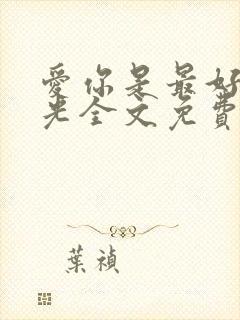 愛你是最好
光全文免費
葉禎